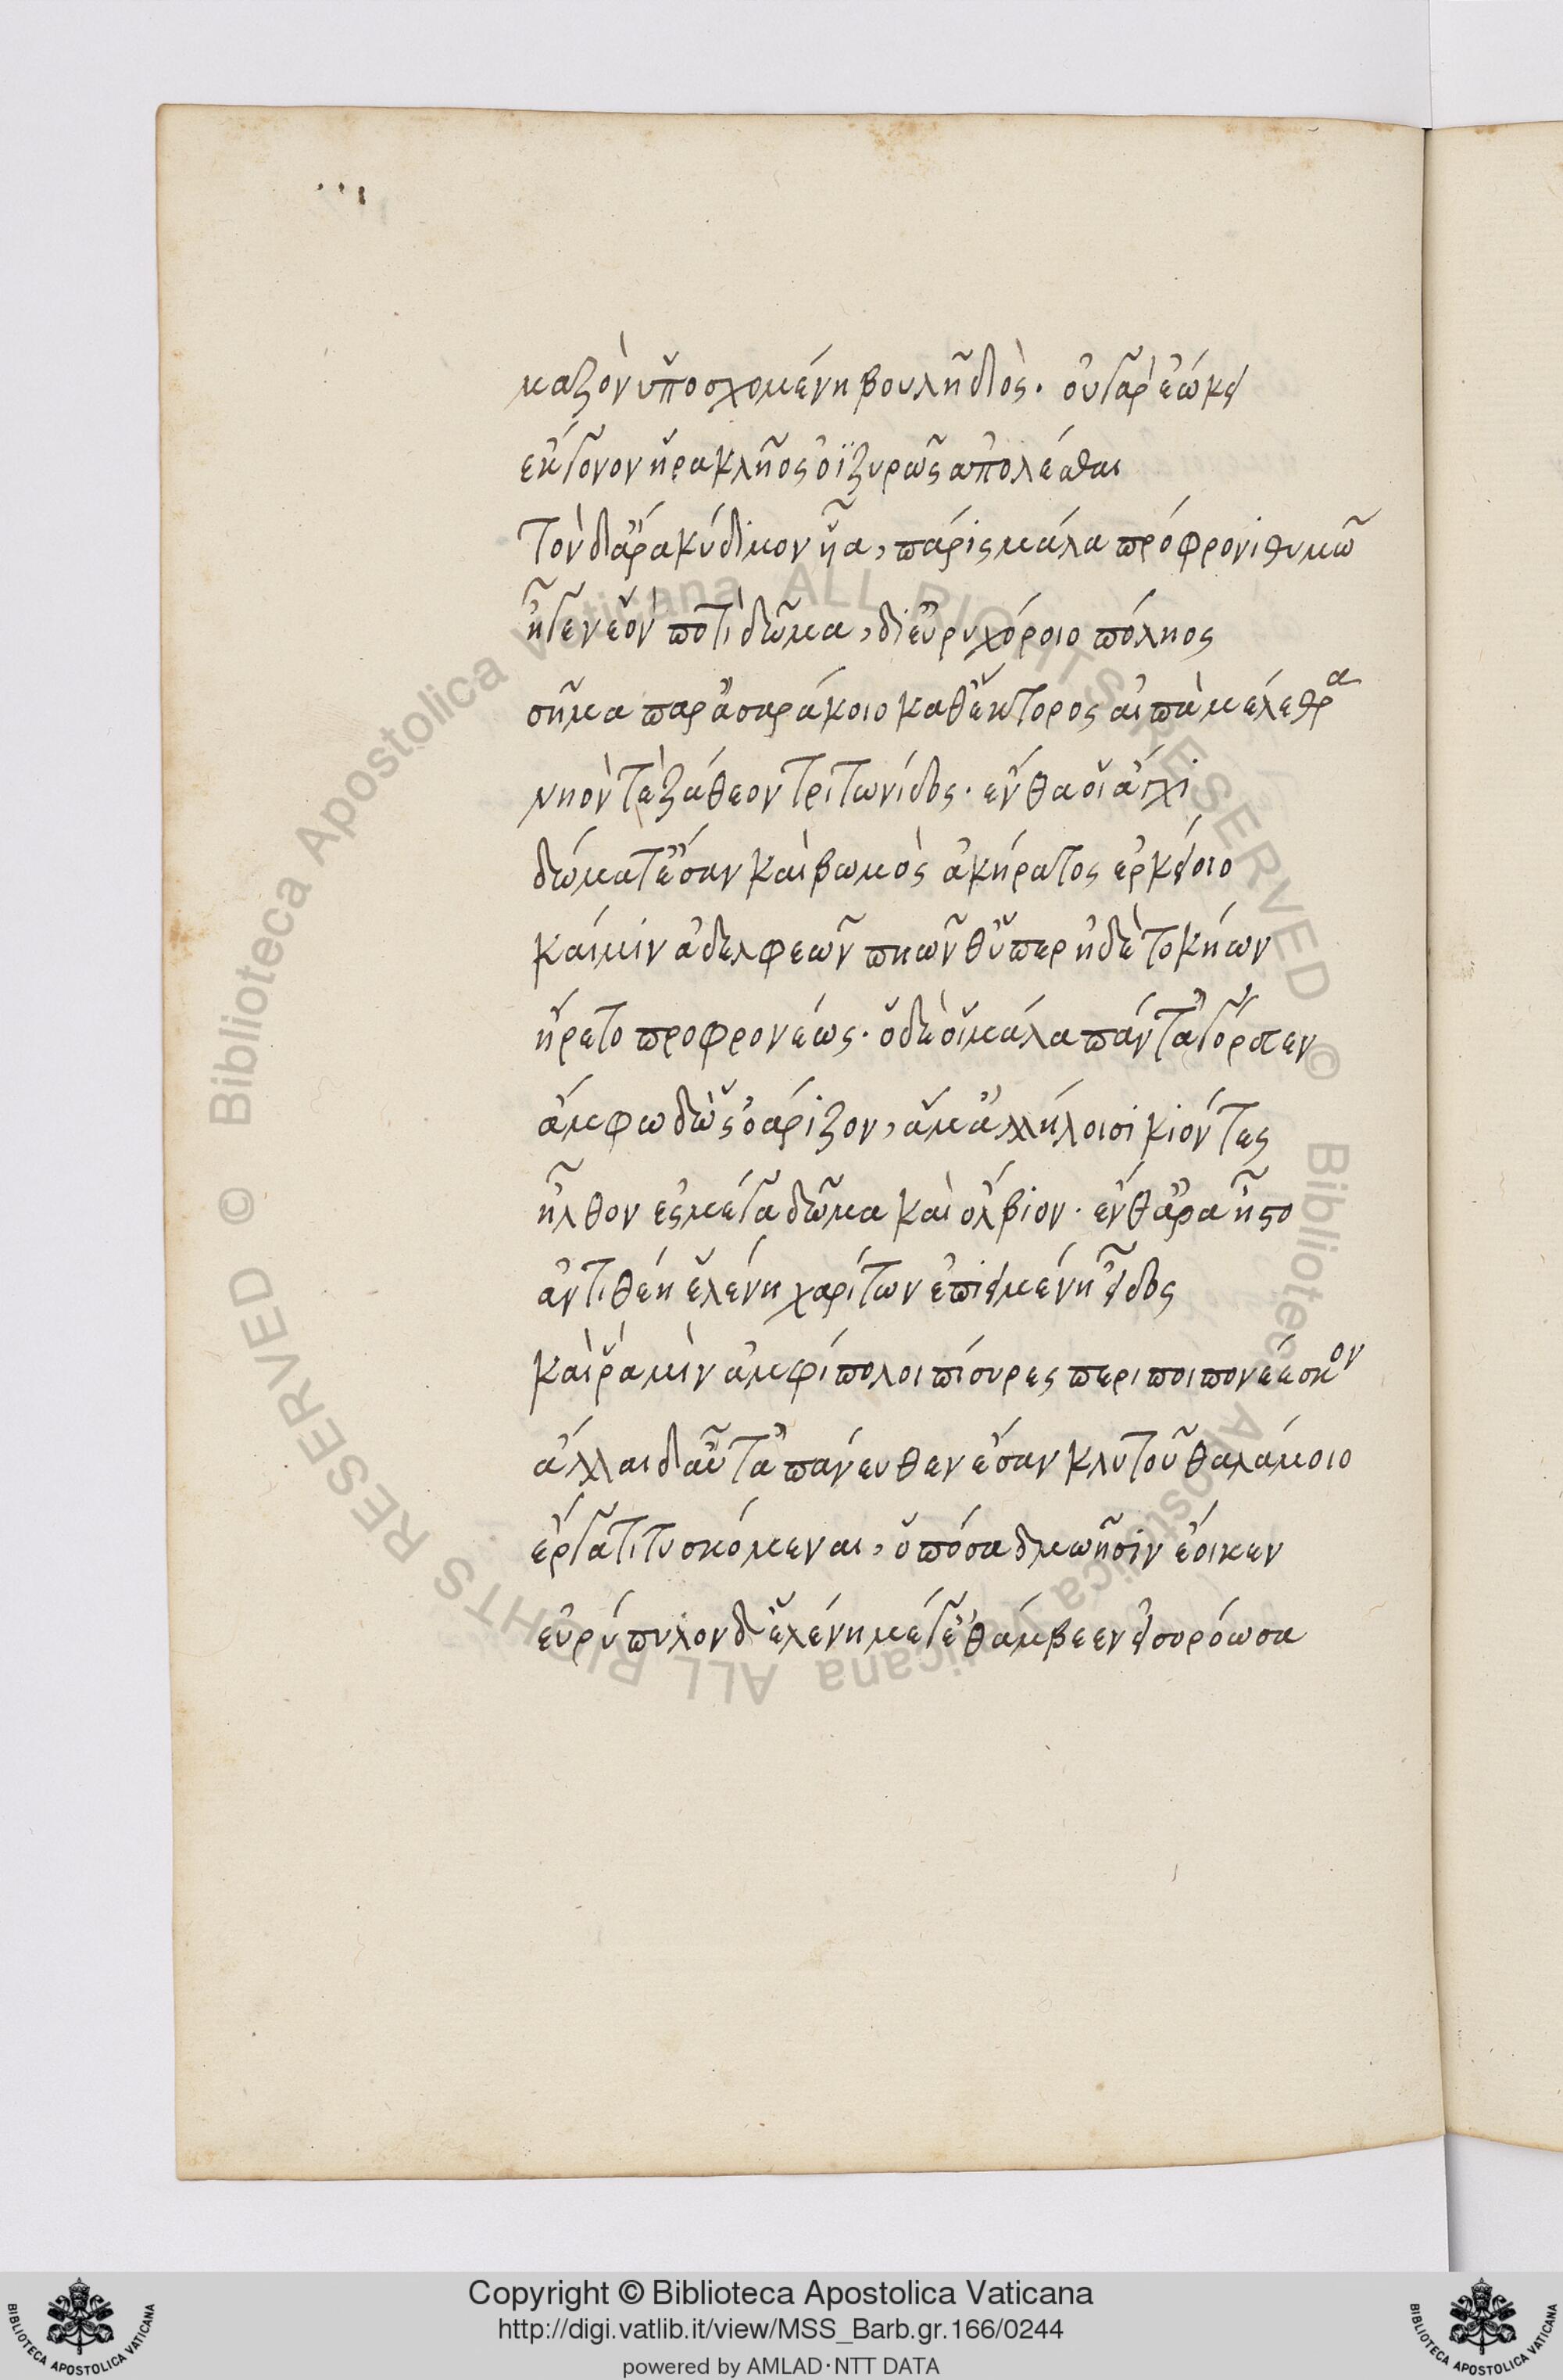 μαζὸν ὑποσχομένη βουλῇ διὸς· οὐ γὰρ ἐώκει
ἔκγονον ἡρακλῆος ὀϊζυρῶς ἀπολέσθαι
Τὸν δ' ἄρα κύδιμον ἦα, πάρις μάλα πρόφρονι θυμῶ
ἦγεν ἑὸν ποτὶ δῶμα, δι' εὐρυχόροιο πόληος
σῆμα παρ' ἀσσαράκοιο καθ' ἕκτορος αἰπὰ μέλεθρα
νηόν τε ζάθεον Τριτωνίδος· ἔνθα οἱ ἄγχι
δώματ' ἔσαν καὶ βωμὸς ἀκήρατος ἑρκείοιο
καί μιν ἀδελφεῶν πηῶν θ' ὕπερ ἠδὲ τοκήων
ἤρετο προφρονέως· ὁ δέ οἱ μάλα πάντ' ἀγόρευεν
ἄμφω δ' ὣς ὀάριζον, ἅμ' ἀλλήλοισι κιόντες
ἦλθον ἐς μέγα δῶμα καὶ ὄλβιον· ἔνθ' ἄρα ἧστο
ἀντιθέη ἑλένη χαρίτων ἐπιειμένη εἶδος
καί ῥά μιν ἀμφίπολοι πίσυρες περιποιπονέεσκον
ἄλλαι δ' αὖτ' ἀπάνευθεν ἔσαν κλυτοῦ θαλάμοιο
ἔργα τιτυσκόμεναι, ὁπόσα δμωῇσιν ἔοικεν
εὐρύπυλον δ' ἑλένη μέγ' ἐθάμβεεν εἰσορόωσα
Copyright © Biblioteca Apostolica Vaticana
http://digi.vatlib.it/view/MSS_Barb.gr.166/0244
powered by AMLAD·NTT DATA